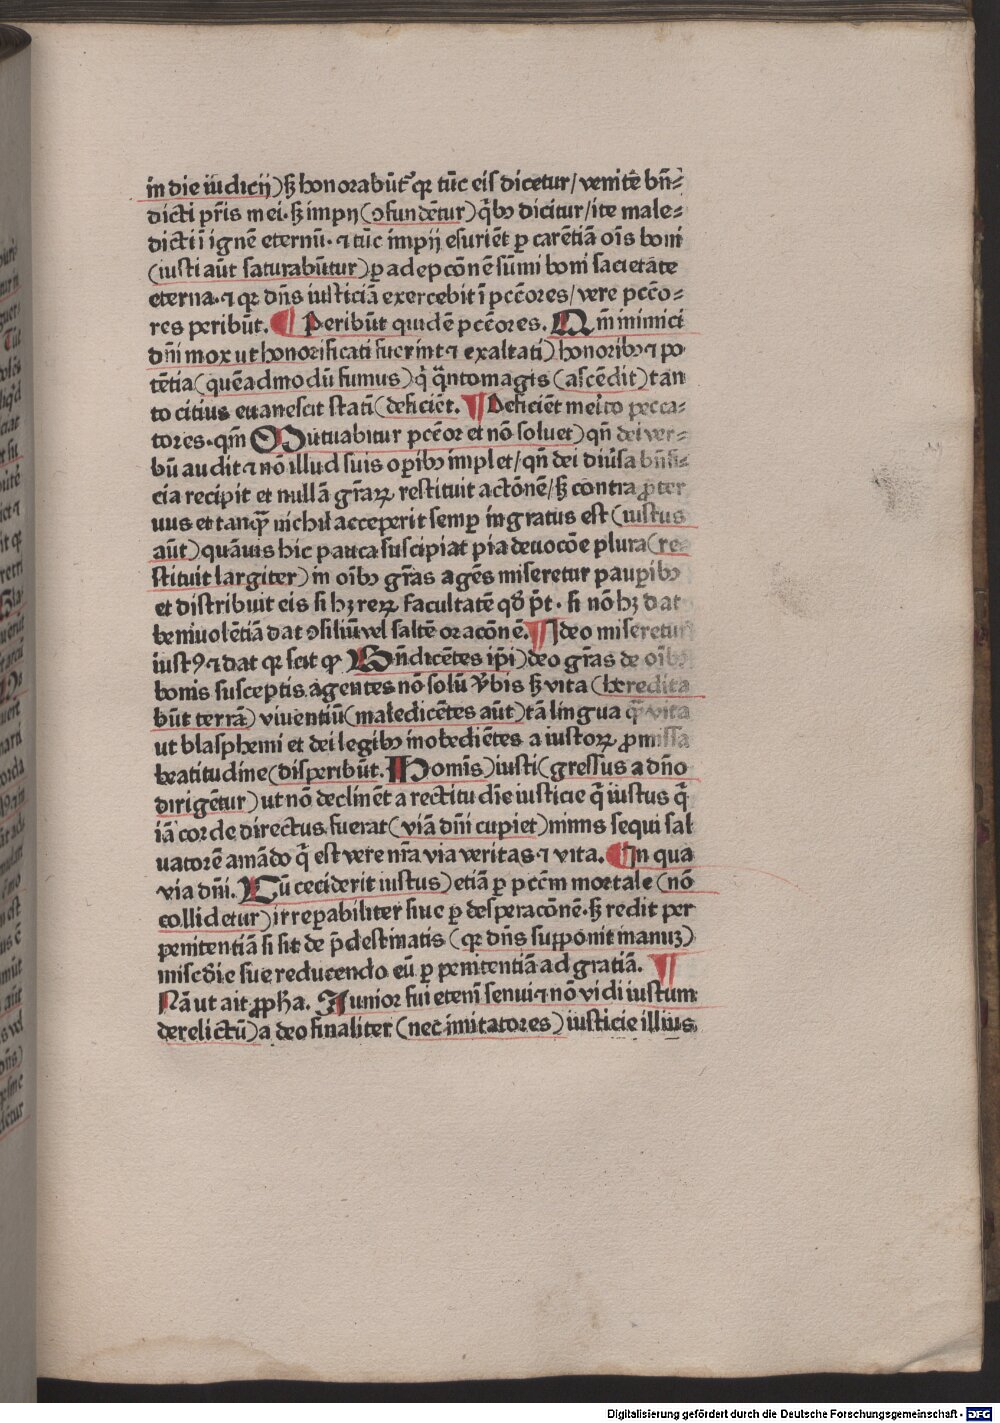 in die iudicij) sʒ honorabūt᷑ qꝛ tūc eis dicetur/ venite bn̄⸗
dicti pr̄is mei· sʒ impij (ↄfundētur) qͥbꝯ dicitur/ ite male⸗
dicti ī ignē eternū· ⁊ tūc impij esuriēt ꝑ carētiā oīs boni
(iusti aūt saturabūtur) ꝑ adepcōnē sūmi boni sacietate
eterna· ⁊ qꝛ dn̄s iusticiā exercebit ī pcc̄ores/ vere pcc̄o⸗
res peribūt. ¶ Peribūt quidē pcc̄ores. Qm̄ inimici
dn̄i mox ut honorificati fuerint ⁊ exaltati) honoribꝯ ⁊ po
tētia (quēadmodū fumus) qͥ qͣnto magis (ascēdit) tan
to citius euanescit statī (deficiēt. ¶ Deficiēt merito pecca⸗
tores· qm̄ Mutuabitur pcc̄or et nō soluet) qn̄ dei ver⸗
bū audit ⁊ nō illud suis oꝑibꝯ implet/ qn̄ dei diūsa bn̄fi⸗
cia recipit et nullā gr̄aꝝ restituit actōnē/ sʒ contra ꝓter
uus et tanqͣ̄ nichil acceperit semꝑ ingratus est (iustus
aūt) quāuis hic pauca suscipiat pia deuocōe plura (re⸗
stituit largiter) in oībꝯ gr̄as agēs miseretur pauꝑibꝯ
et distribuit eis si hʒ reꝝ facultatē qd̄ p̄t· si nō hʒ dat
beniuolētiā dat ↄsiliū vel saltē oracōnē. ¶ Ideo miseretur
iustꝯ ⁊ dat qꝛ scit ꝙ Bn̄dicētes ip̄i) deo gr̄as de oībꝯ
bonis susceptis agentes nō solū v̄bis sʒ vita (heredita
būt terrā) viuentiū (maledicētes aūt) tā lingua qͣ̄ vita
ut blasphemi et dei legibꝯ inobediētes a iustoꝝ ꝓmissa
beatitudine (disperibūt. Homīs) iusti (gressus a dn̄o
dirigētur) ut nō declinēt a rectitudīe iusticie qͥ iustus qͥ
iā corde directus fuerat (viā dn̄i cupiet) nimis sequi sal
uatorē amādo qͥ est vere nr̄a via veritas ⁊ vita. ¶ In qua
via dn̄i. Cū ceciderit iustus) etiā ꝑ pcc̄m mortale (nō
collidetur) irrepabiliter siue ꝑ desperacōnē· sʒ redit per
penitentiā si sit de p̄destinatis (qꝛ dn̄s supponit manuʒ)
misc̄die sue reducendo eū ꝑ penitentiā ad gratiā. ¶
Nā ut ait ꝓpħa. Iunior fui etenī senui ⁊ nō vidi iustum
derelictū) a deo finaliter (nec imitatores) iusticie illius
Digitalisierung gefördert durch die Deutsche Forschungsgemeinschaft - DFG